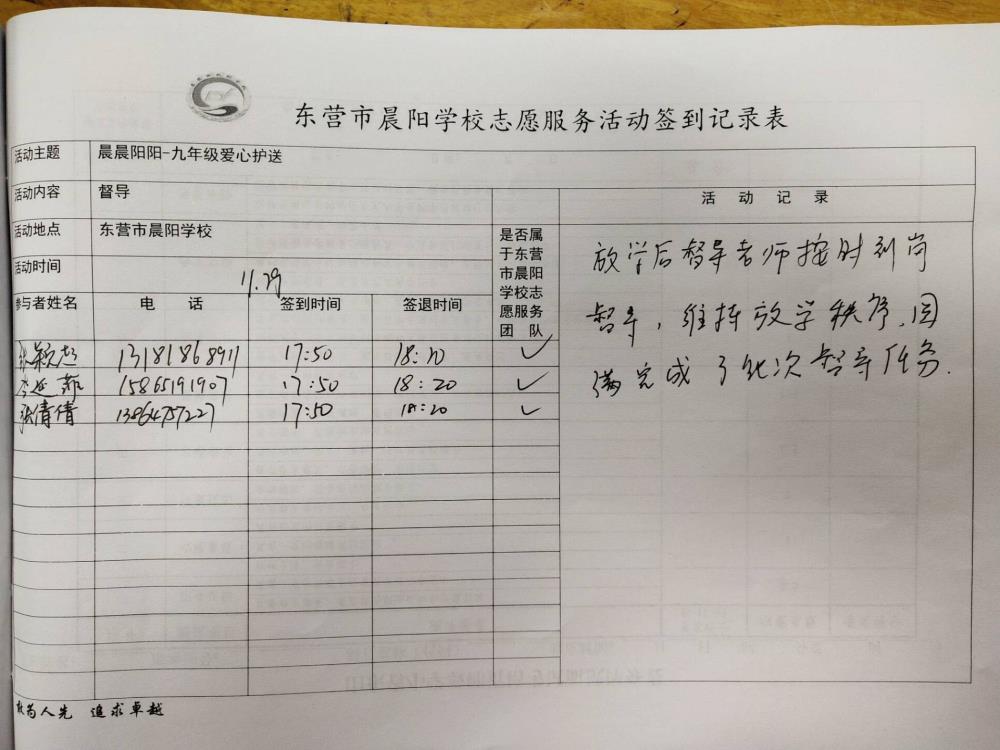 东营市晨阳学校志愿服务活动签到记录表
活动主题 晨晨阳阳-九年级爱心护送
活动内容 督导
活动地点 东营市晨阳学校
活动时间 11.29
参与者姓名 电 话 签到时间 签退时间
是否属
于东营
市晨阳
学校志
愿服务
团 队
张颖超 13181868911 17:50 18:20 ✓
李延菊 15865191907 17:50 18:20 ✓
张倩倩 13864757227 17:50 18:20 ✓
活 动 记 录
放学后督导老师按时到岗
督导,维持放学秩序,圆
满完成了此次督导任务.
敢为人先 追求卓越